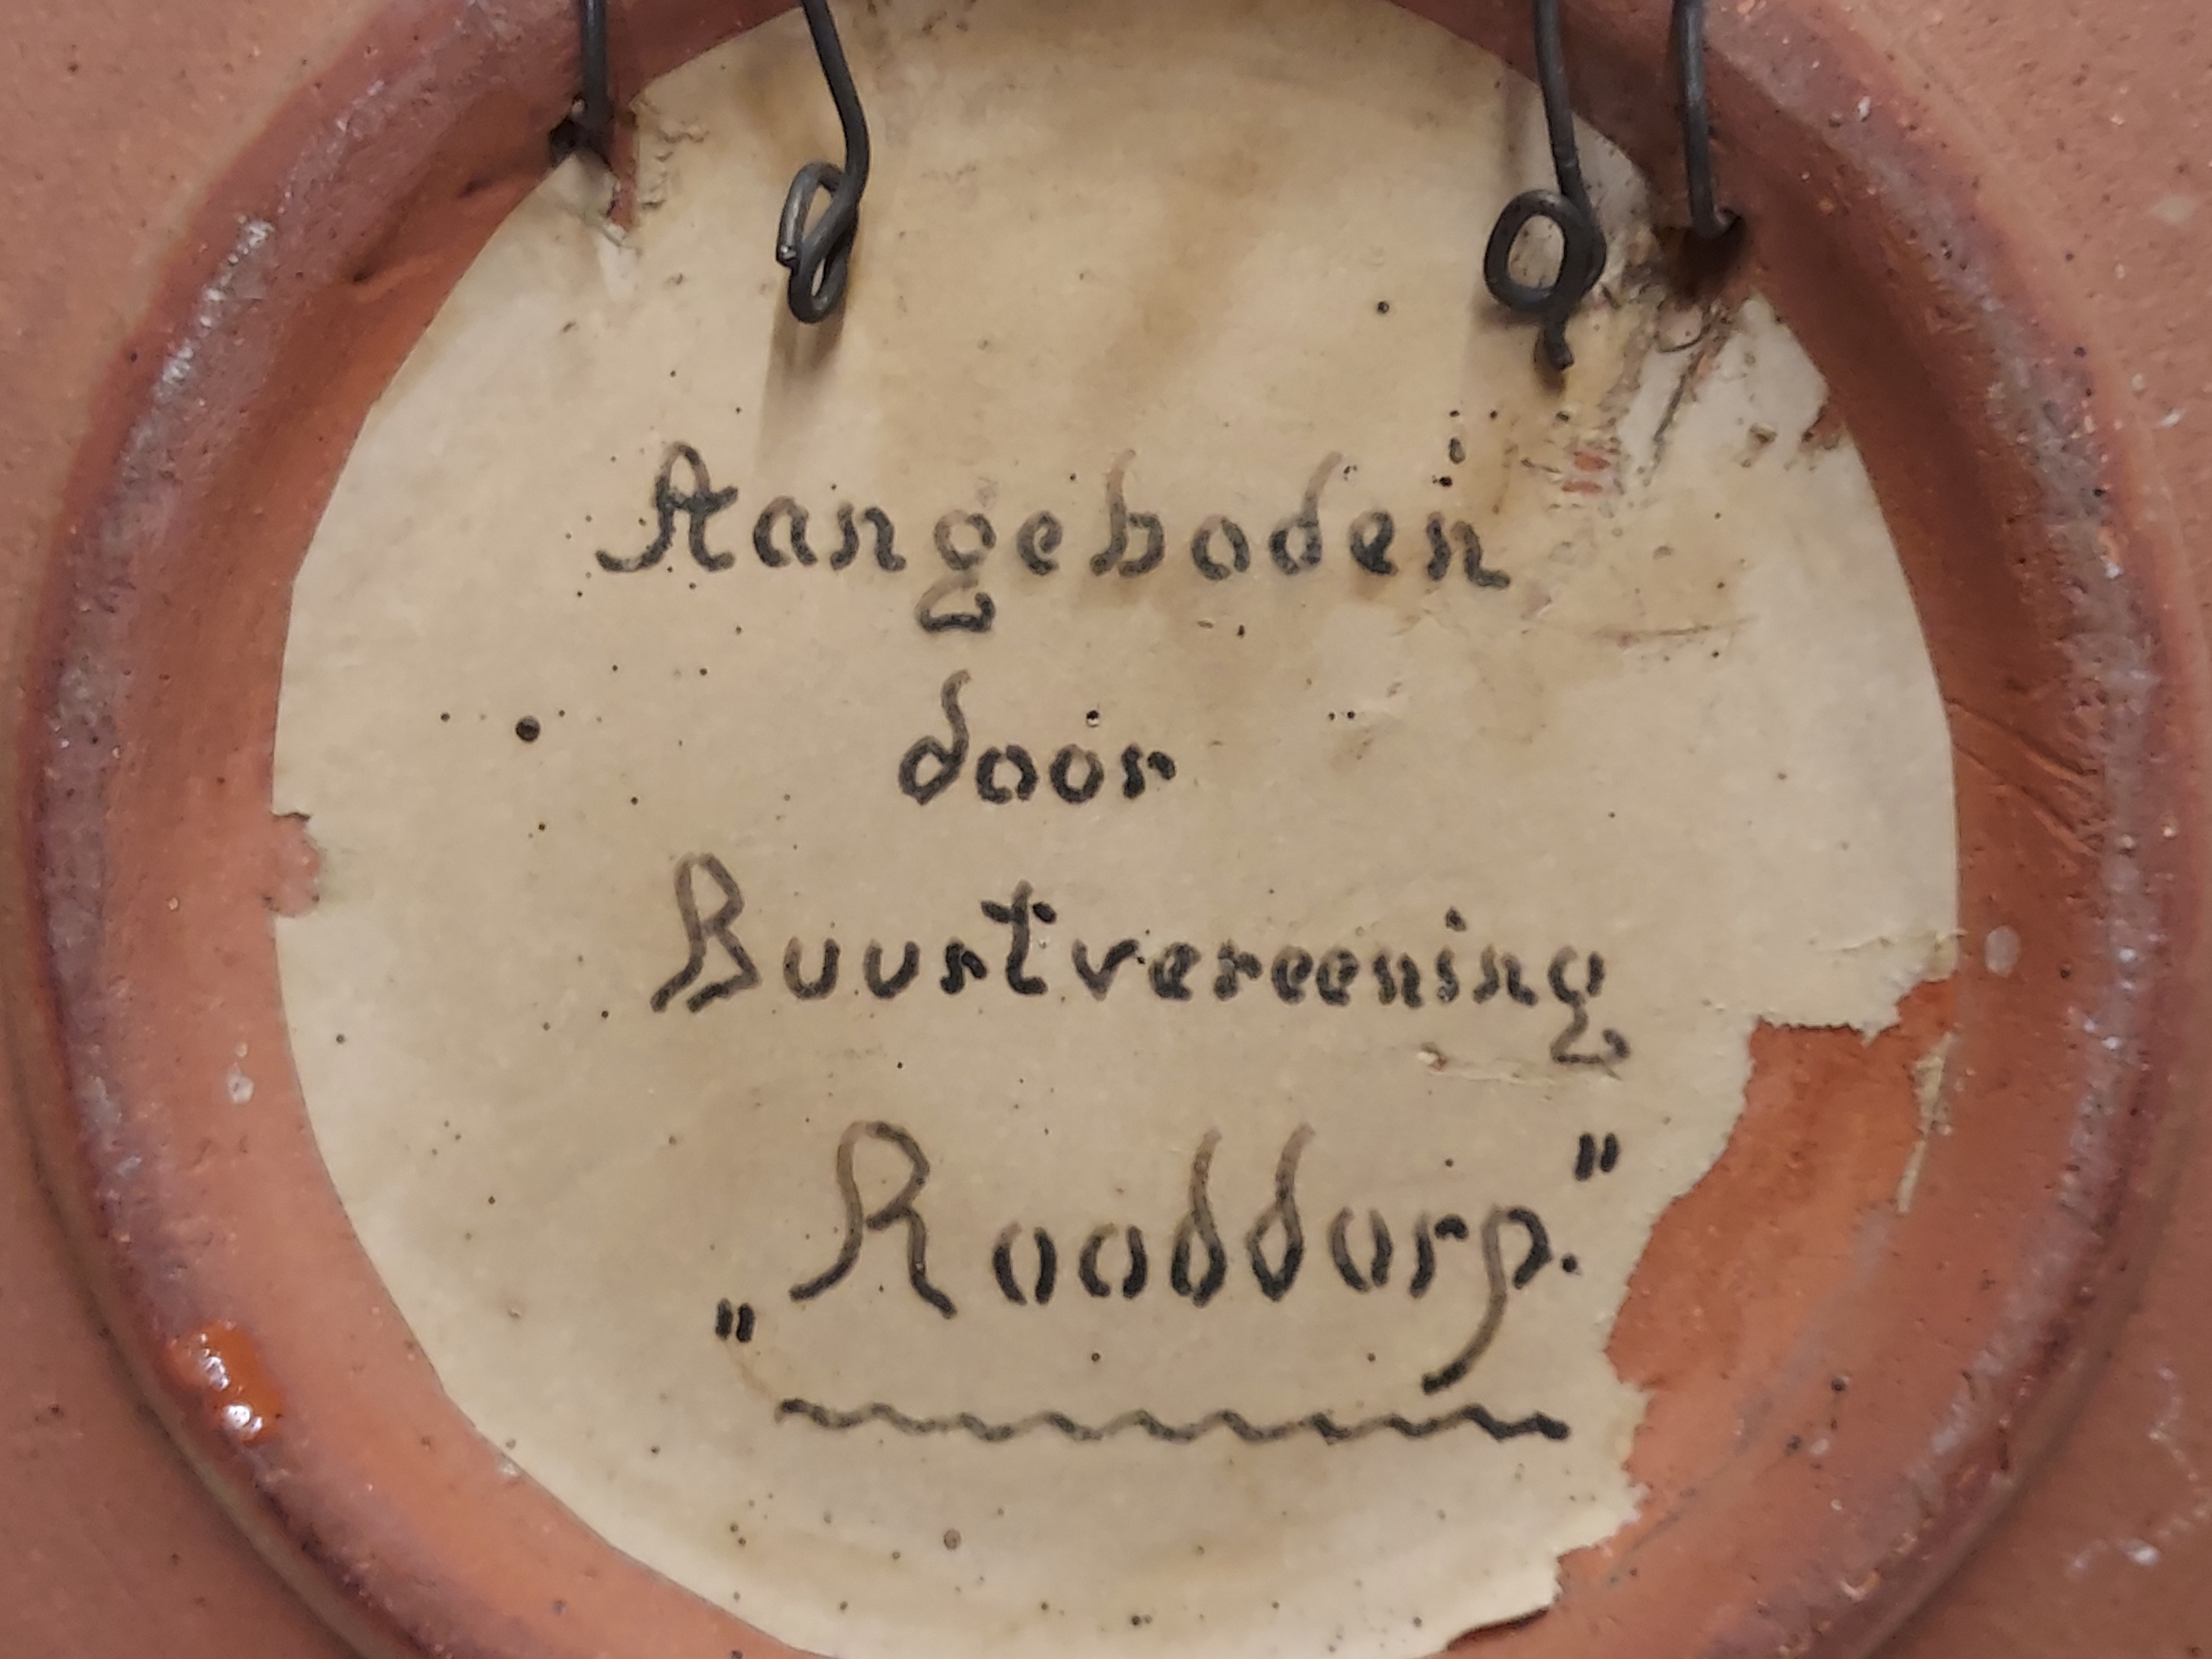 Aangeboden
door
Buurtvereening
„Rooddorp."